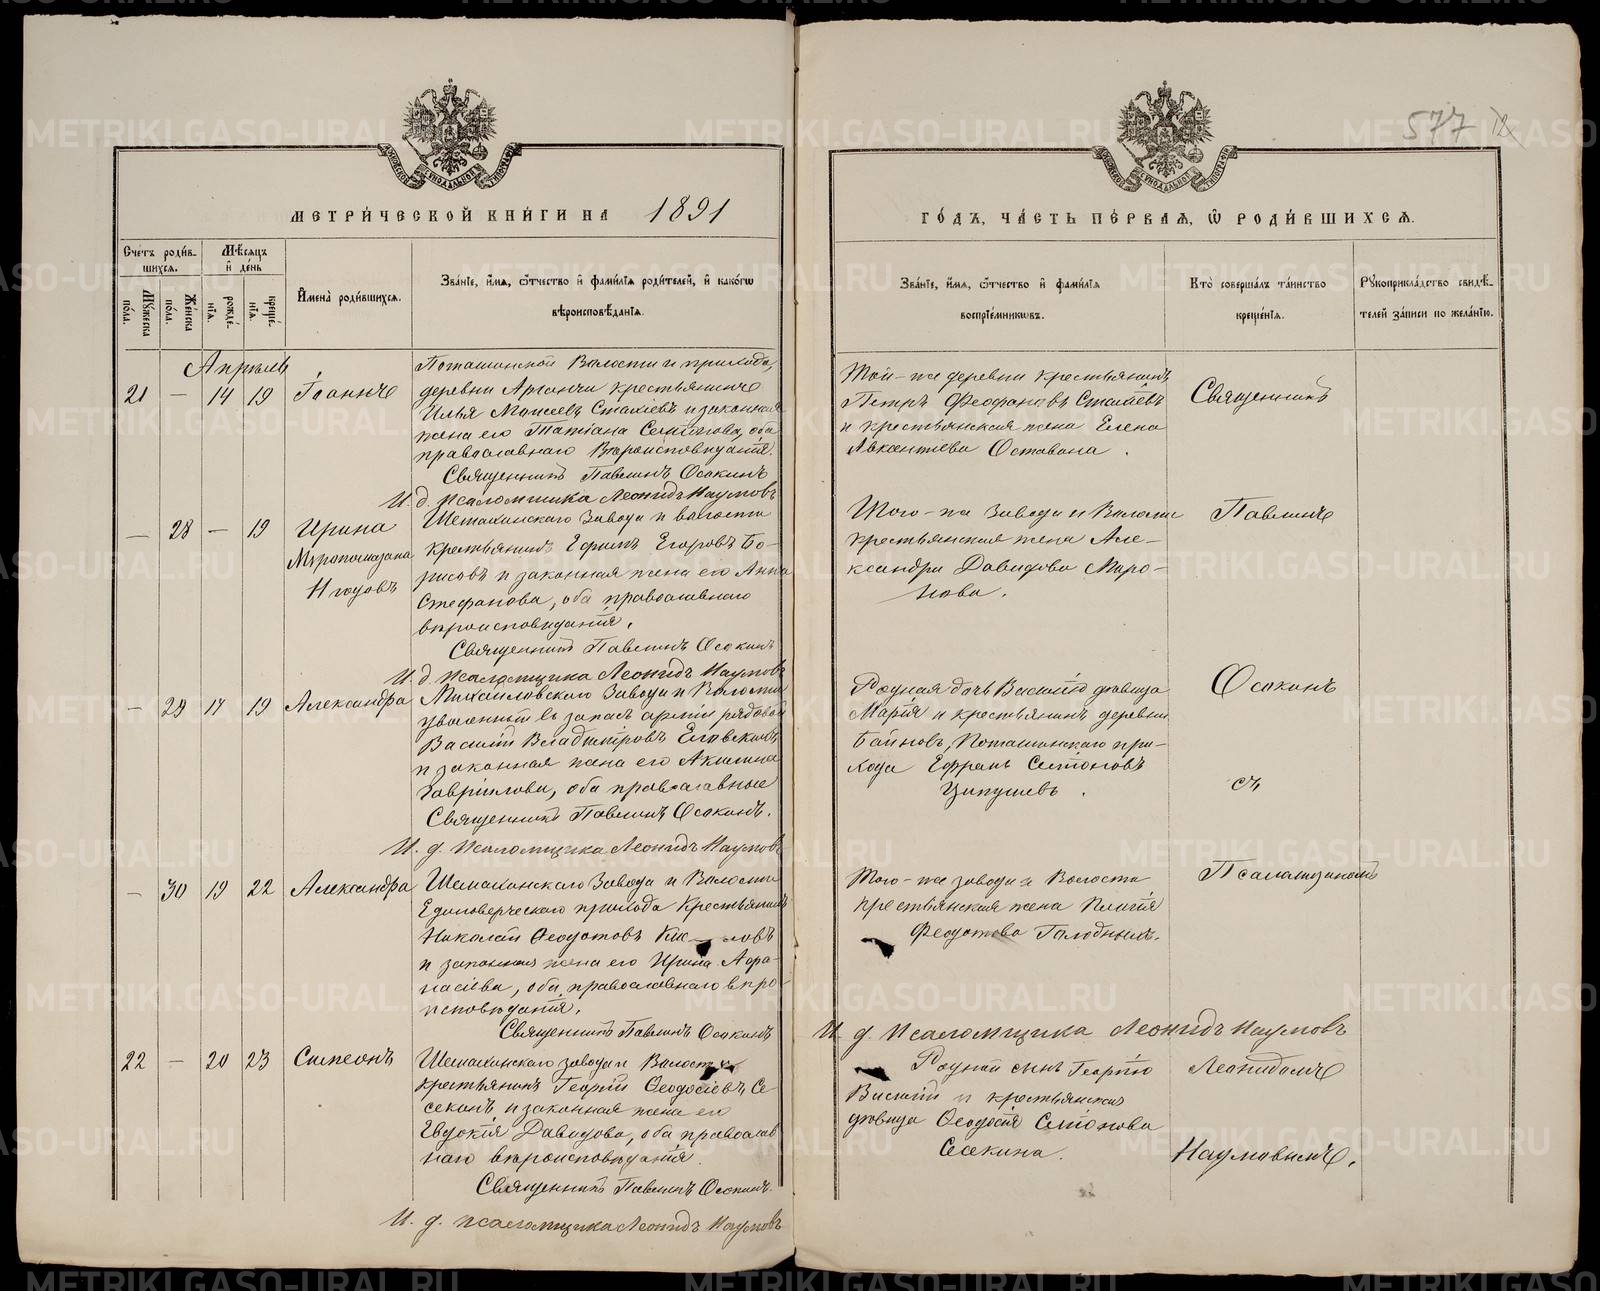 577
МЕТРИ́ЧЕСКОЙ КНИ́ГИ НА 1891
ГО́ДЪ, ЧА́СТЬ ПЕ́РВАЯ, Ѡ РОДИ́ВШИХСЯ.
Сче́тъ роди́в-
шихся.
Мѣ́сяцъ
и де́нь
Му́жеска по́ла.
Же́нска по́ла.
рожде́-
нія.
креще́-
нія.
Имена̀ роди́вшихся.
Зва́ніе, и́мя, ѻ́тчество и фами́лія роди́телей, и како́гѡ
вѣроисповѣ́данія.
Зва́ніе, и́мя, ѻ́тчество и фами́лія
воспріе́мниковъ.
Кто̀ соверша́лъ та́инство
креще́нія.
Рукоприкла́дство свидѣ́-
телей за́писи по жела́нію.
Апрѣль
21 — 14 19 Іоаннъ
Поташинской Волости и прихода,
деревни Артанчи крестьянинъ
Илья Моисеевъ Стахіевъ и законная
жена его Татіана Семіонова, оба
православнаго Вѣроисповѣданія.
Священникъ Павлинъ Осокинъ
И. д. псаломщика Леонидъ Наумовъ
Той-же деревни крестьянинъ
Петръ Феофановъ Стахіевъ
и крестьянская жена Елена
Авксентіева Остовона.
Священникъ
— 28 — 19 Ирина
Мѵропомазана
Шемахинскаго Завода и волости
крестьянинъ Ефимъ Егоровъ Бо-
рисовъ и законная жена его Анна
Стефанова, оба православнаго
вѣроисповѣданія.
Священникъ Павлинъ Осокинъ
И. д. Псаломщика Леонидъ Наумовъ
Того-же Завода и Волости
крестьянская жена Але-
ксандра Давидова Миро-
нова.
Павлинъ
— 29 17 19 Александра
Михайловскаго Завода и Волости
уволенный въ запасъ арміи рядовой
Василій Владиміровъ
и законная жена его Акилина
Гавріилова, оба православные
Священникъ Павлинъ Осокинъ.
И. д. Псаломщика Леонидъ Наумовъ
Родная дочь Василію дѣвица
Марія и крестьянинъ деревни
Поташинскаго при-
хода Ефремъ Семіоновъ
Ципушевъ.
Осокинъ
съ
— 30 19 22 Александра
Шемахинскаго Завода и Волости
Единоверческаго прихода Крестьянинъ
Николай Ѳеодотовъ
и законная жена его Ирина Афа-
насіева, оба православнаго вѣро-
исповѣданія.
Священникъ Павлинъ Осокинъ
И. д. Псаломщика Леонидъ Наумовъ
Того-же завода и Волости
крестьянская жена Пелагія
Феодотова Голодныхъ.
Псаломщикомъ
22 — 20 23 Симеонъ
Шемахинскаго завода и Волости
крестьянинъ Георгій Ѳеодосіевъ Се-
секинъ и законная жена его
Евдокія Давидова, оба православ
наго вѣроисповѣданія.
Священникъ Павлинъ Осокинъ.
И. д. псаломщика Леонидъ Наумовъ
Родной сынъ Георгію
Василій и крестьянская
дѣвица Ѳеодосія Семіонова
Сесекина.
Леонидомъ
Наумовымъ.
METRIKI.GASO-URAL.RU